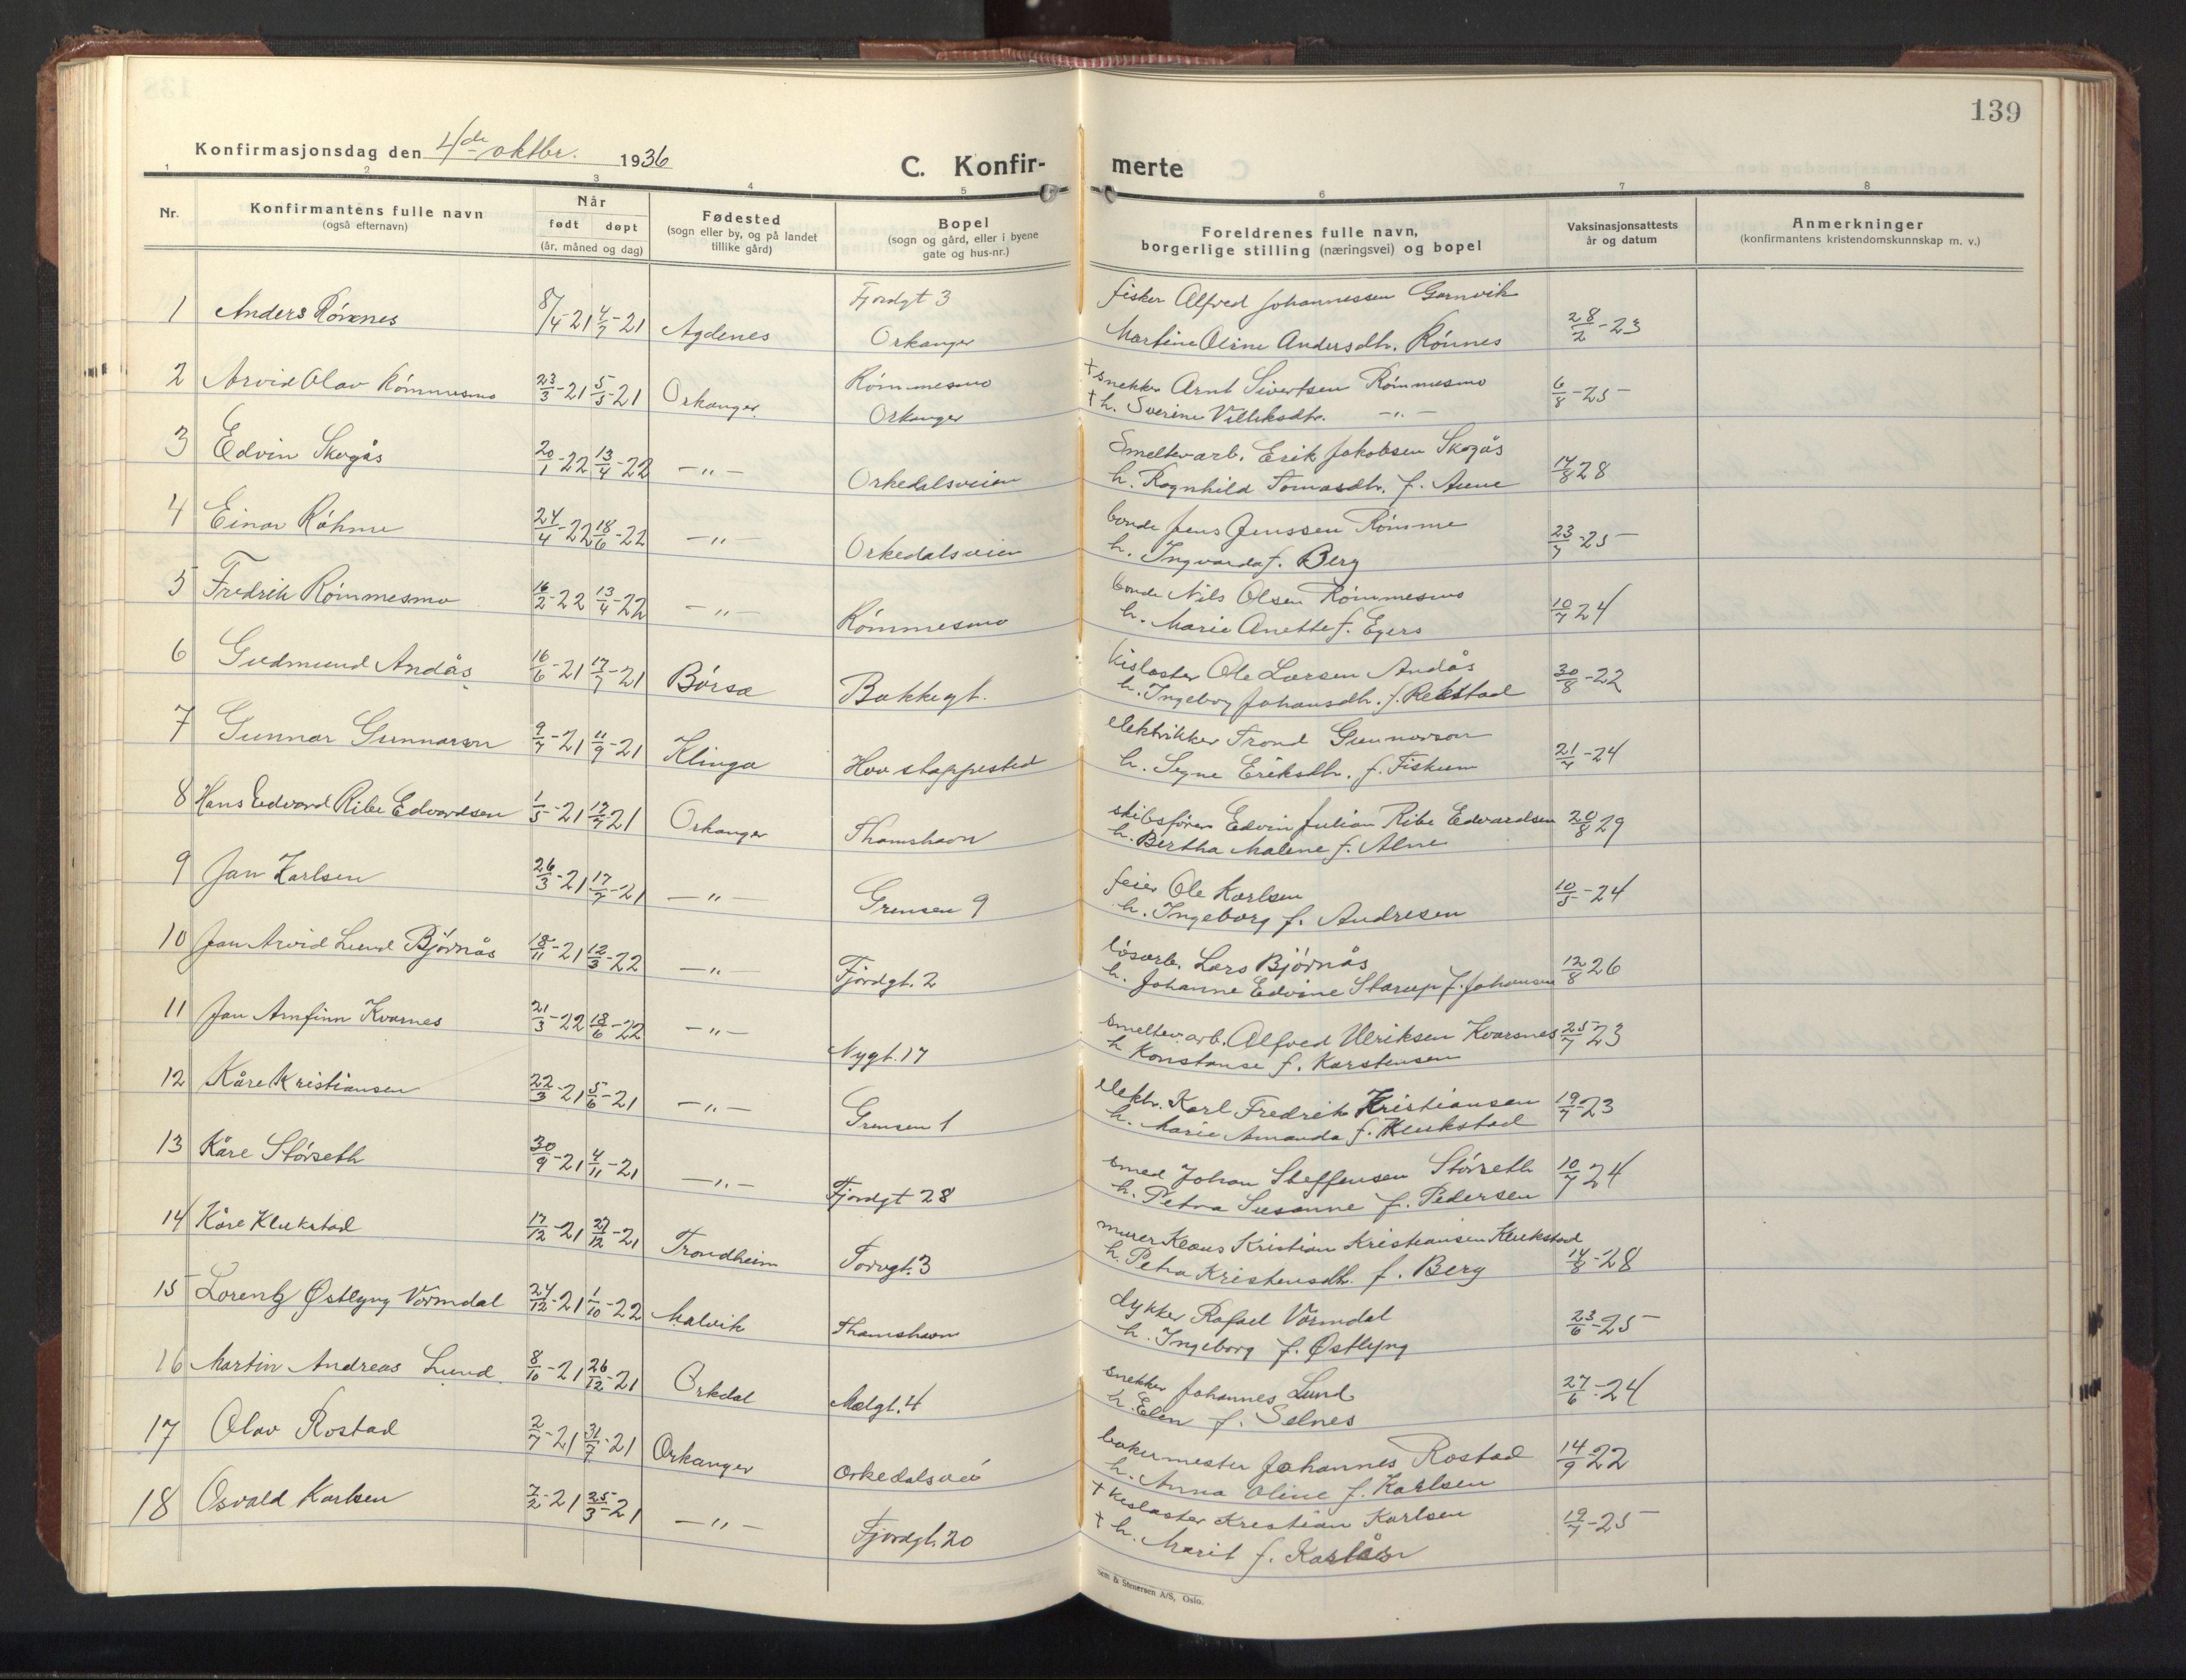 139
Konfirmasjonsdag den 4de oktbr. 1936
C. Konfir- merte
1 2 3 4 5 6 7 8
Nr.
Konfirmantens fulle navn
(også efternavn)
Når
født døpt
(år, måned og dag)
Fødested
(sogn eller by, og på landet
tillike gård)
Bopel
(sogn og gård, eller i byene
gate og hus-nr.)
Foreldrenes fulle navn,
borgerlige stilling (næringsvei) og bopel
Vaksinasjonsattests
år og datum
Anmerkninger
(konfirmantens kristendomskunnskap m. v.)
1 Anders Rónnes 8/4-21 4/7-21 Agdenes Fjordgt 3
Orkanger
fisker Alfred Johannessen Garnvik
Martine Oline Andersdtr. Rónnes
28/2-23
2 Arvid Olav Rómmesmo 23/3-21 5/5-21 Orkanger. Rómmesmo
Orkanger
+ snekker Arnt Sivertsen Rómmesmo
+ h. Sverine Villiksdtr. -"-
6/8-25
3 Edvin Skogås 20/1-22 13/4-22 -"- Orkedalsveien
Smeltev.arb. Erik Jakobsen Skogås
h. Ragnhild Tomasdtr. f. Aune
14/8 28
4 Einar Róhme 24/4-22 18/6-22 -"- Orkedalsveien
bonde Jens Jenssen Rómme
h. Ingvarda f. Berg
23/7-25
5 Fredrik Rómmesmo 16/2-22 13/4-22 -"- Rómmesmo
bonde Nils Olsen Rómmesmo
h. Marie Anette f. Egers
10/7 24
6 Gudmund Andås 16/6-21 17/7-21 Bórsa Bakkegt.
kislaster Ole Larsen Andås
h. Ingeborg Johansdtr. f. Rekstad
30/8-22
7 Gunnar Gunnarson 9/7-21 11/9-21 Klinga Hov stoppested
elektrikker Trond Gunnarson
h. Signe Eriksdtr. f. Fiskum
21/7-24
8 Hans Edvard Ribe Edvardsen 1/5-21 17/7 21 Orkanger Thamshavn
skibsfórer Edvin Julian Ribe Edvardsen
h. Bertha Malene f. Alne
20/8 29
9 Jan Karlsen 26/3-21 17/7-21 -"- Grensen 9
feier Ole Karlsen
h. Ingeborg f. Andresen
10/5-24
10 Jan Arvid Lund Bjórnås 18/11-21 12/3-22 -"- Fjordgt. 2
lósarb. Lars Bjórnås
h. Johanne Edvine Starup f. Johansen
12/8 26
11 Jan Arnfinn Kvarnes 21/3-22 18/6-22 -"- Nygt. 17
smeltev.arb. Alfred Ulriksen Kvarsnes
h Konstanse f. Karstensen
25/7 23
12 Kåre Kristiansen 22/3-21 5/6-21 -"- Grensen 1
elektr. Karl Fredrik Kristiansen
h. Marie Amanda f. Klukstad
19/7-23
13 Kåre Stórseth 30/9-21 4/11-21 -"- Fjordgt 28
smed Johan Steffensen Stórseth
h. Petra Susanne f. Pedersen
10/7 24
14 Kåre Klukstad 17/12-21 27/12-21 Trondheim Torvgt. 3
murer Klaus Kristian Kristiansen Klukstad
h. Petra Kristensdtr. f. Berg
14/8-28
15 Lorentz Østlyng Vormdal 24/12-21 1/10-22 Malvik Thamshavn
dykker Rafael Vormdal
h. Ingeborg f. Østlyng
23/6-25
16 Martin Andreas Lund. 8/10-21 26/12-21 Orkdal Melgt. 4
snekker Johannes Lund
h. Elen f. Selnes
27/6-24
17 Olav Rostad 2/7-21 31/7-21 Orkanger Orkedalsvei
bakermester Johannes Rostad
h. Anna Oline f. Karlsen
14/9 22
18 Osvald Karlsen 7/2-21 25/3-21 -"- Fjordgt. 20
+ kislaster Kristian Karlsen
+ h. Marit f.
19/7-25
Sem & Stenersen A/S, Oslo.